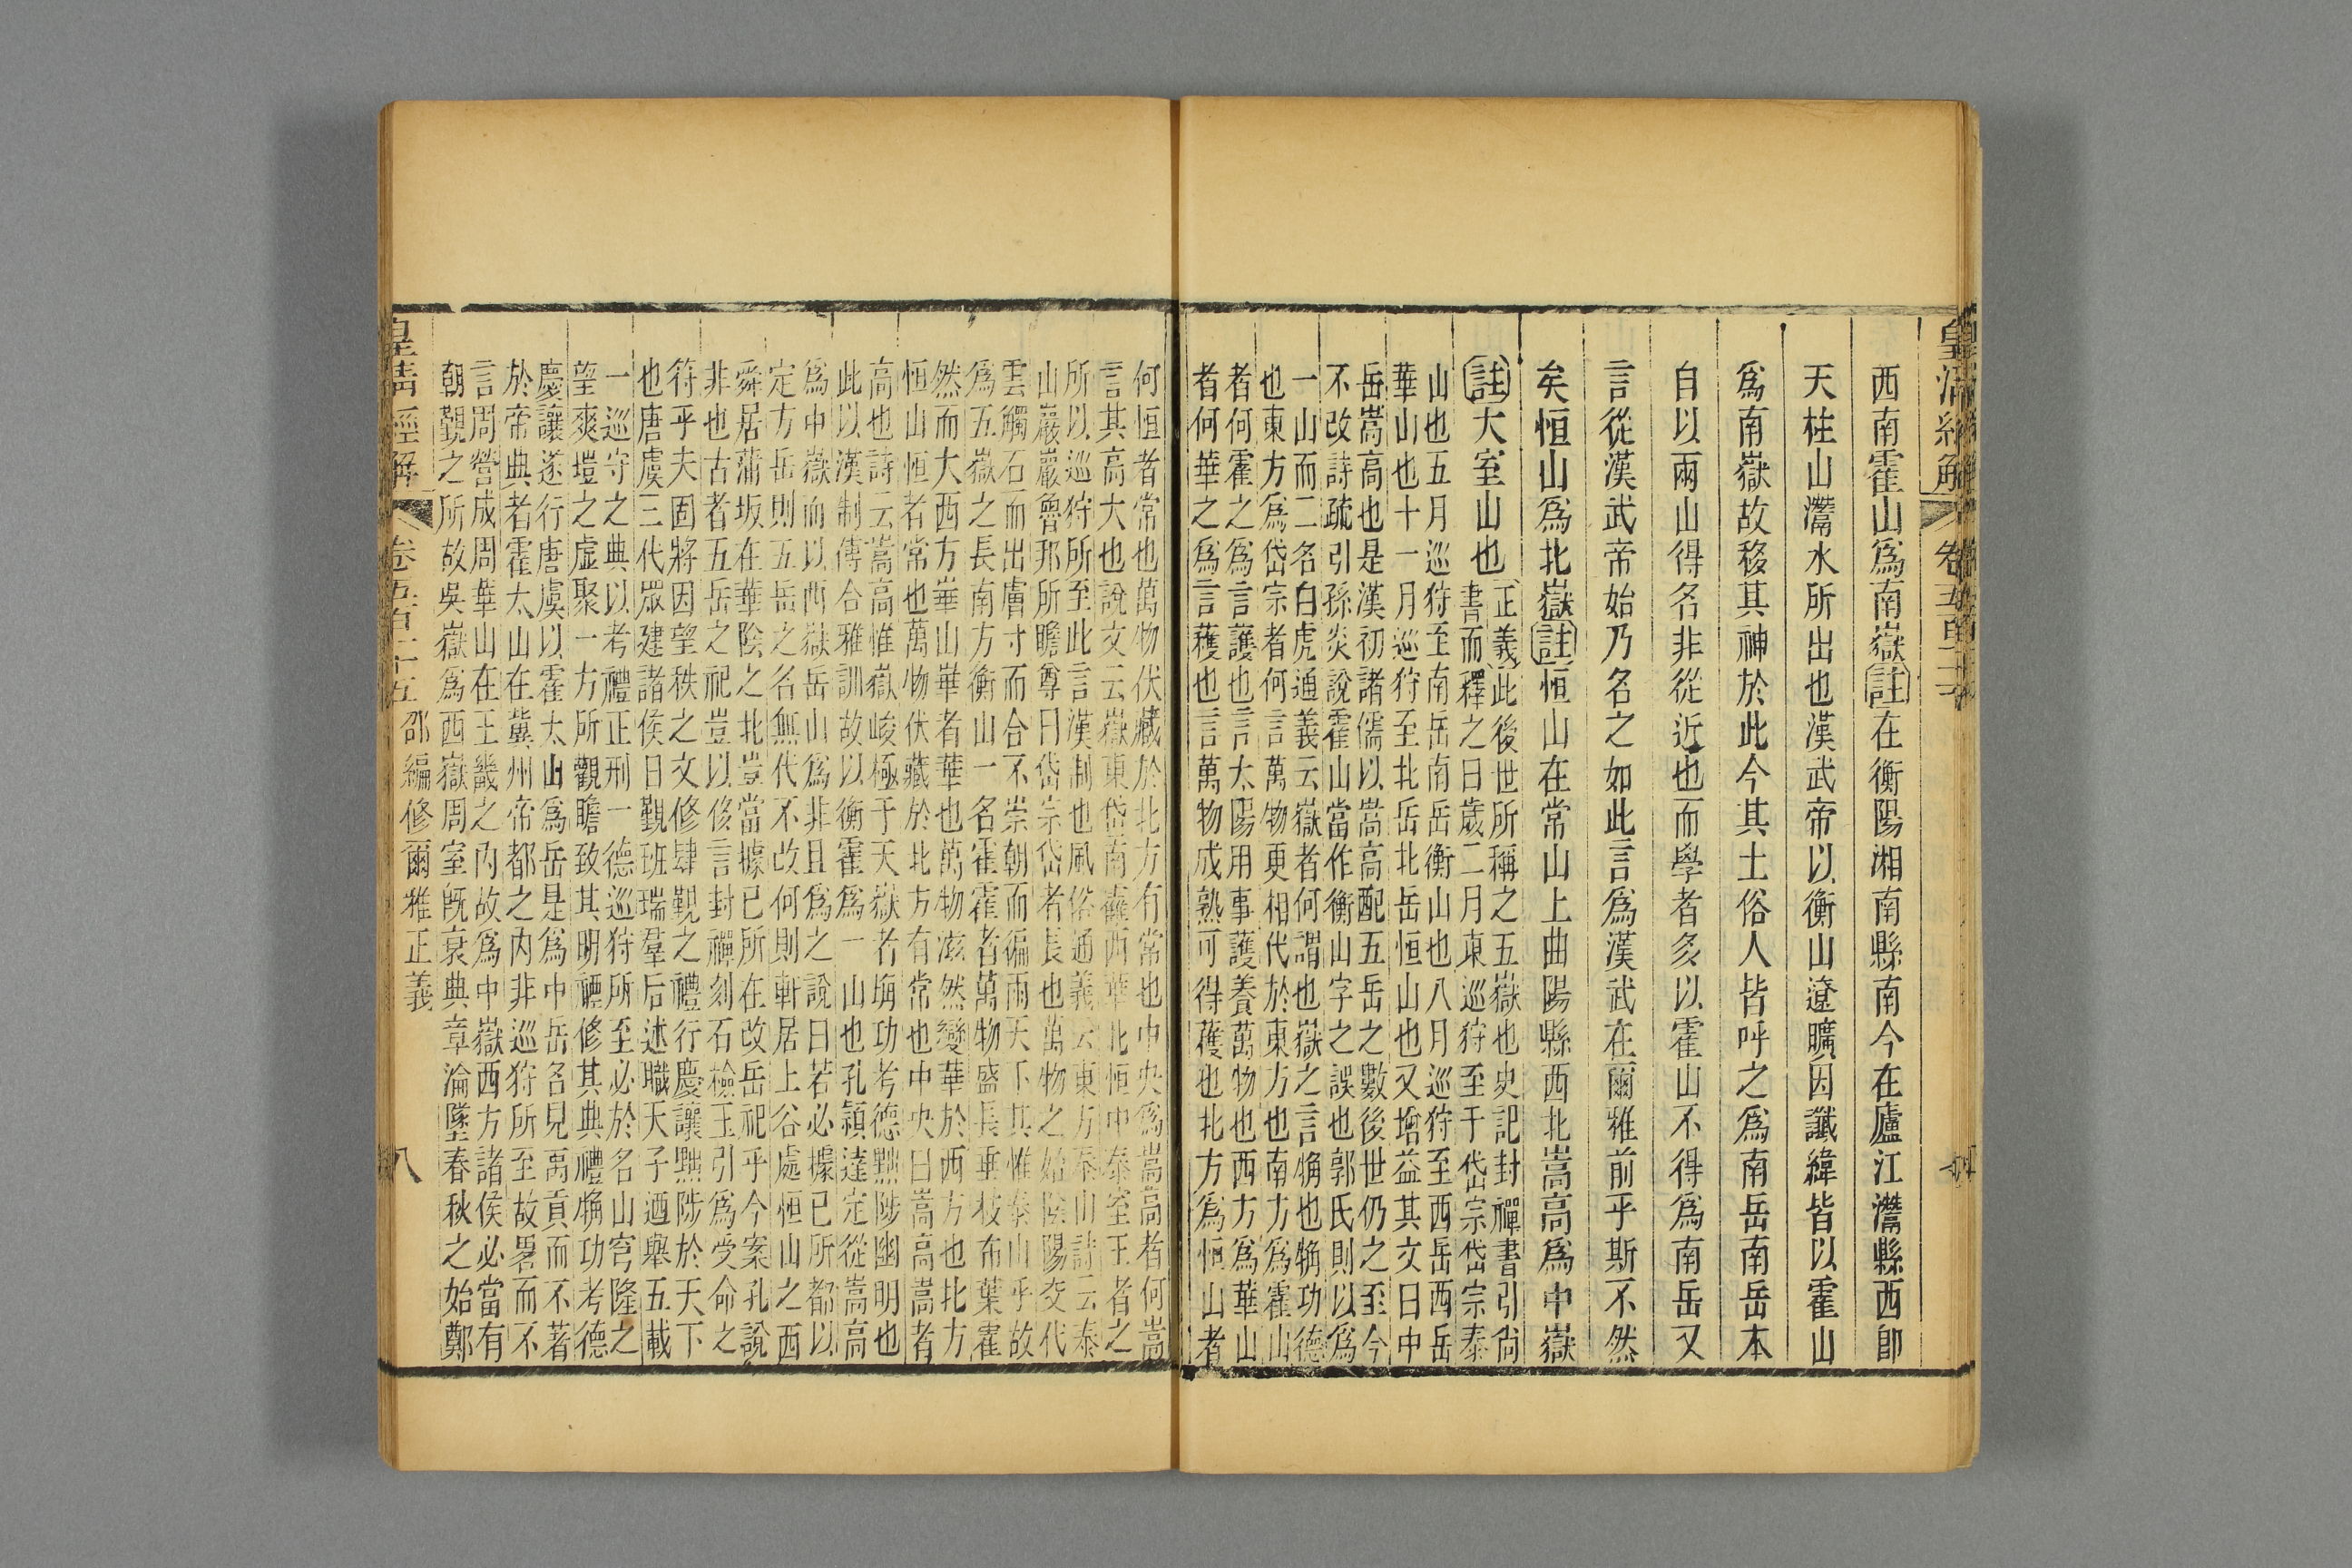 皇清經解
西南霍山爲南嶽註在衡陽湘南縣南今在廬江灊縣西卽
天柱山灊水所出也漢武帝以衡山遼曠因讖緯皆以霍山
爲南嶽故移其神於此今其土俗人皆呼之爲南岳南岳本
自以兩山得名非從近也而學者多以霍山不得爲南岳又
言從漢武帝始乃名之如此言爲漢武在爾雅前乎斯不然
矣恒山爲北嶽註恒山在常山上曲陽縣西北嵩高爲中嶽
註大室山也正義此後世所稱之五嶽也史記封禪書引尚
書而釋之曰歲二月東巡狩至于岱宗岱宗泰
山也五月巡狩至南岳南岳衡山也八月巡狩至西岳西岳
華山也十一月巡狩至北岳北岳恒山也又增益其文曰中
岳嵩高也是漢初諸儒以嵩高配五岳之數後世仍之至今
不改詩疏引孫炎說霍山當作衡山字之誤也郭氏則以爲
一山而二名白虎通義云嶽者何謂也嶽之言捔也捔功德
也東方爲岱宗者何言萬物更相代於東方也南方爲霍山
者何霍之爲言護也言太陽用事護養萬物也西方爲華山
者何華之爲言穫也言萬物成熟可得穫也北方爲恒山者
何恒者常也萬物伏藏於北方有常也中央爲嵩高者何嵩
言其高大也說文云嶽東岱南靃西華北恒中泰室王者之
所以巡狩所至此言漢制也風俗通義云東方泰山詩云泰
山巖巖魯邦所瞻尊曰岱宗岱者長也萬物之始陰陽交代
雲觸石而出膚寸而合不崇朝而徧雨天下其惟泰山乎故
爲五嶽之長南方衡山一名霍霍者萬物盛長垂枝布葉霍
然而大西方崋山崋者華也萬物滋然變華於西方也北方
恒山恒者常也萬物伏藏於北方有常也中央曰嵩高嵩者
高也詩云嵩高惟嶽峻極于天嶽者捔功考德黜陟幽明也
此以漢制傅合雅訓故以衡霍爲一山也孔穎達定從嵩高
爲中嶽而以西嶽岳山爲非且爲之說曰若必據已所都以
定方岳則五岳之名無代不改何則軒居上谷處恒山之西
舜居蒲坂在華陰之北豈當據已所在改岳祀乎今案孔說
非也古者五岳之祀豈以侈言封禪刻石檢玉引爲受命之
符乎夫固將因望秩之文修肆覲之禮行慶讓黜陟於天下
也唐虞三代眾建諸侯日覲班瑞羣后述職天子迺舉五載
一巡守之典以考禮正刑一德巡狩所至必於名山穹隆之
望爽塏之虛聚一方所觀瞻致其明禋修其典禮捔功考德
慶讓遂行唐虞以霍太山爲岳是爲中岳名見禹貢而不著
於帝典者霍太山在冀州帝都之内非巡狩所至故畧而不
言周營成周華山在王畿之内故爲中嶽西方諸侯必當有
朝覲之所故吳嶽爲西嶽周室旣衰典章淪墜春秋之始鄭
皇清經解 卷五百十五 邵編修爾雅正義 八